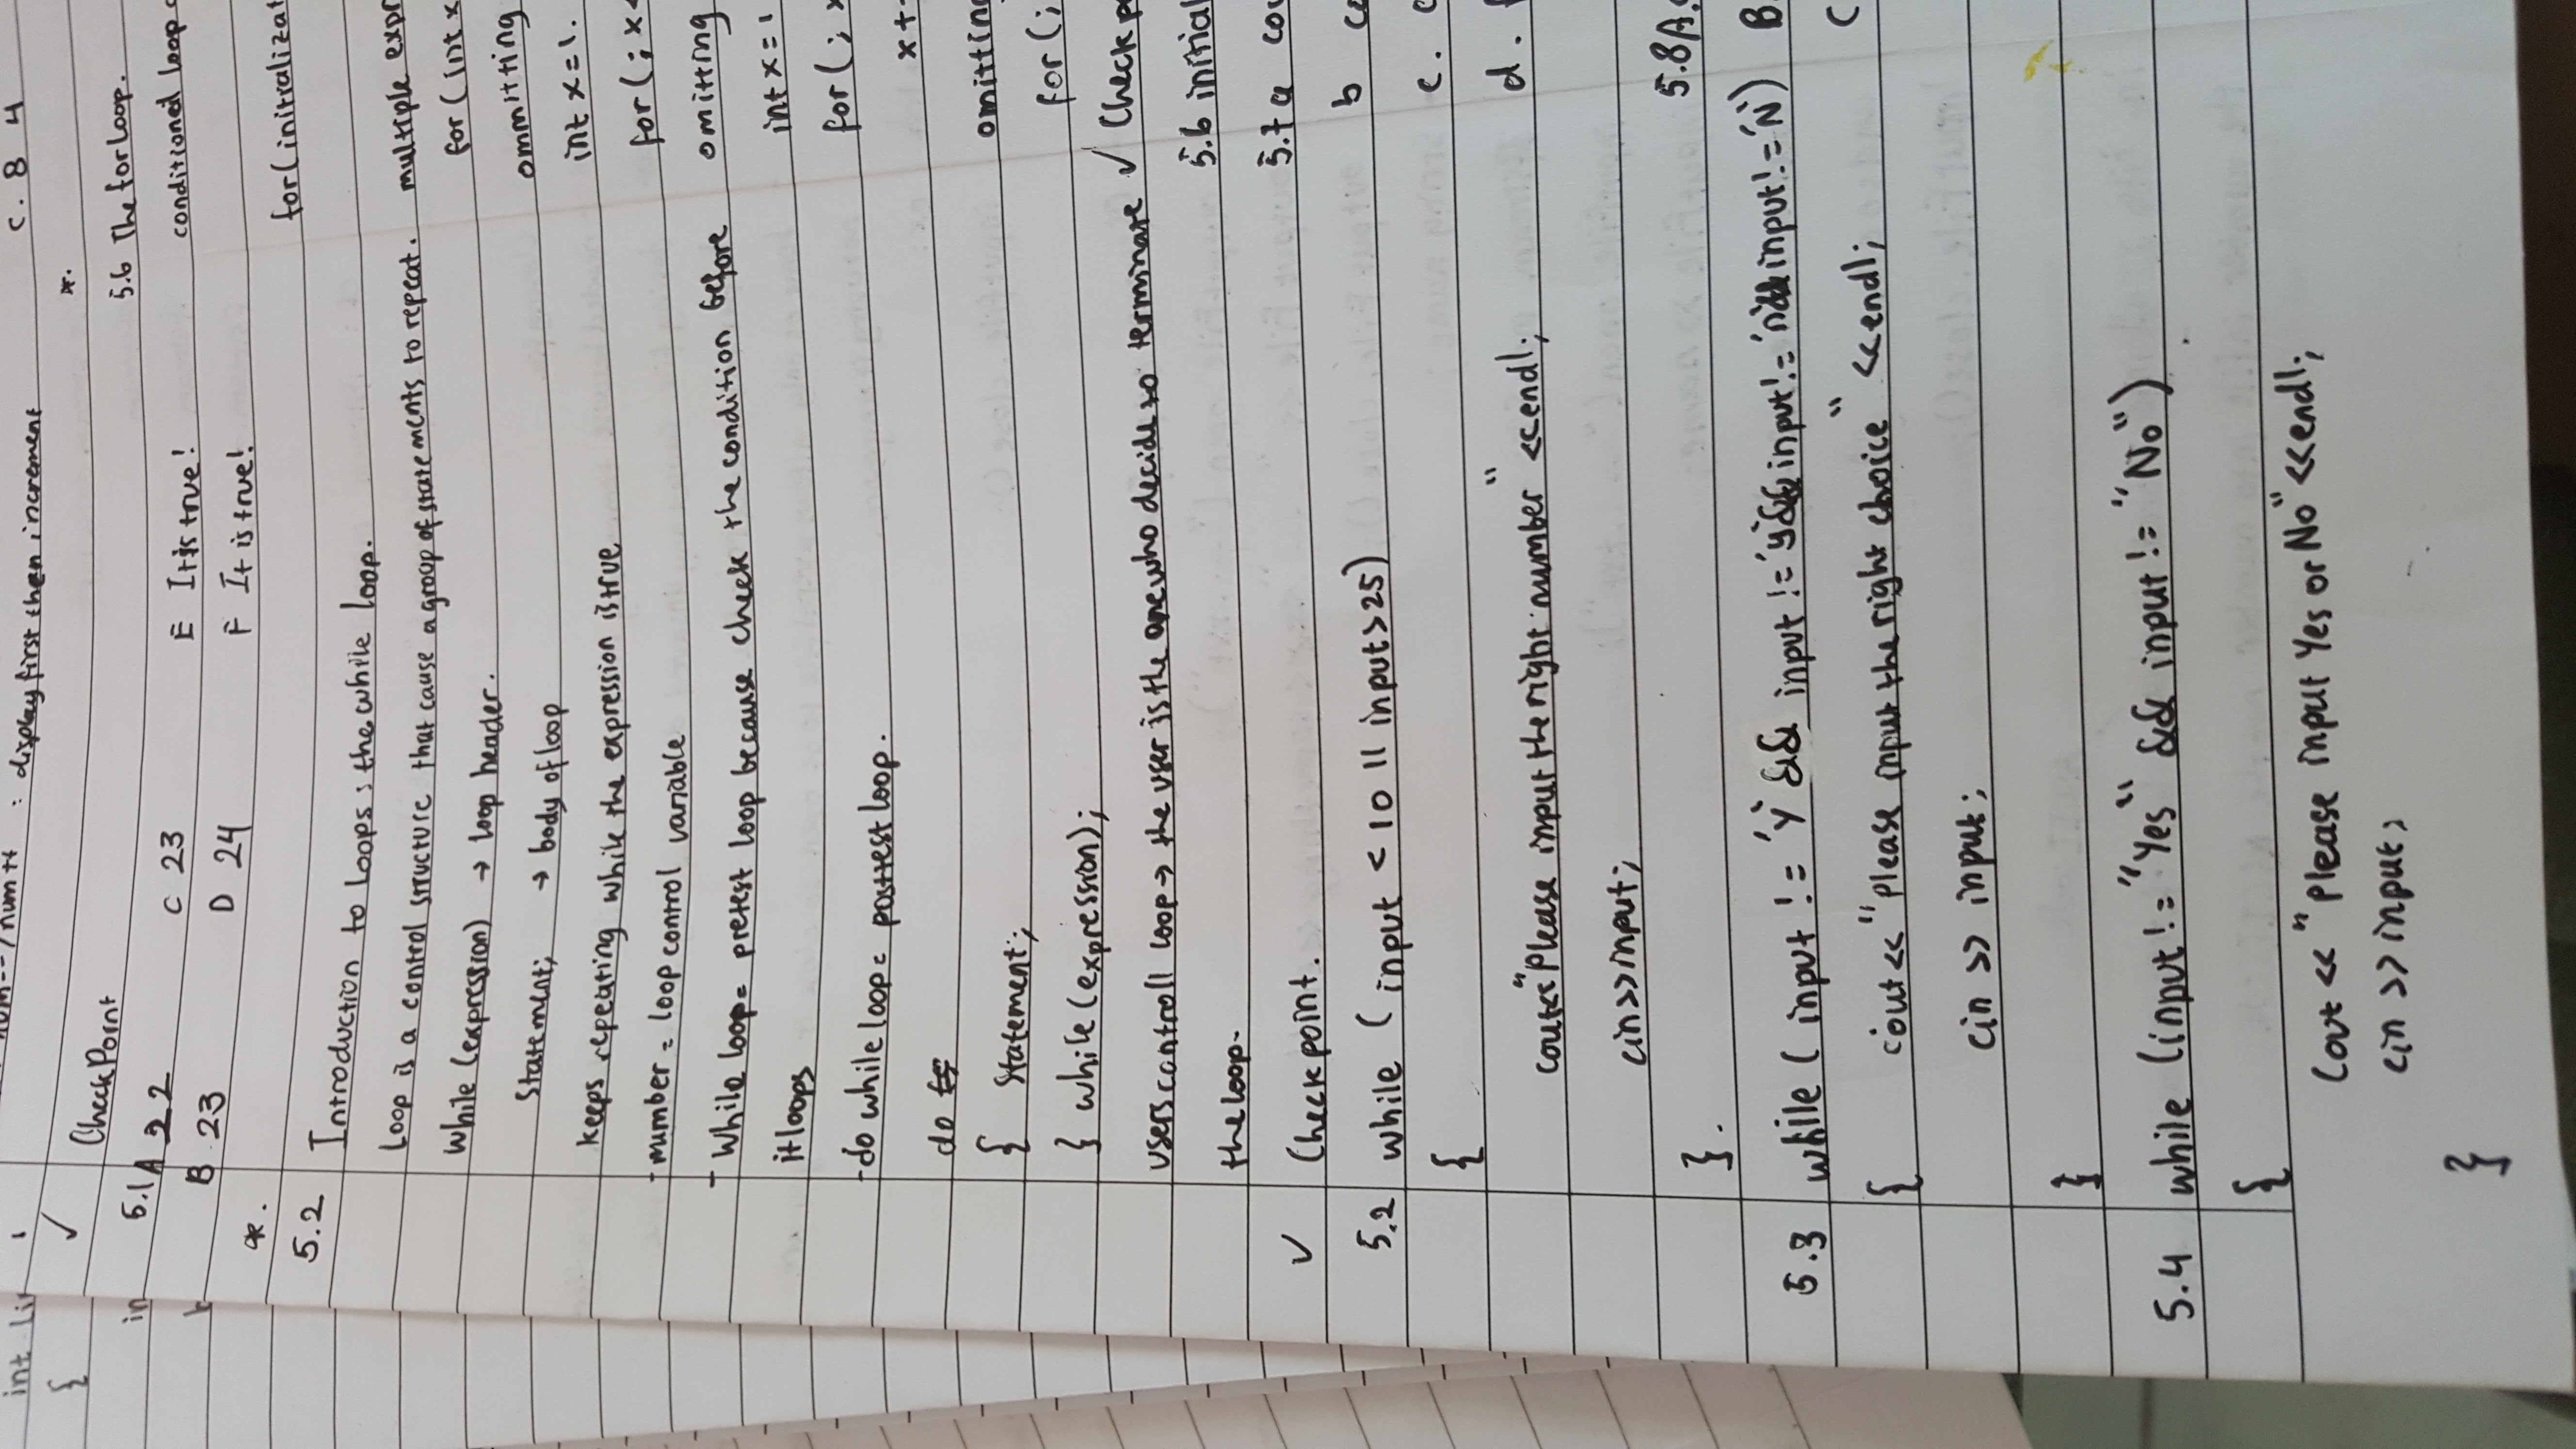 : display first then increment
✓ CheckPoint
5.1 A 22 C 23 E It is true!
B 23 D 24 F It is true!
*.
5.2 Introduction to loops : the while loop.
Loop is a control structure that cause a group of statements to repeat.
While (expression) → loop header.
Statement; → body of loop
keeps repeating while the expression is true
- number = loop control variable
- While loop = pretest loop because check the condition before
it loops
- do while loop = posttest loop.
do
{ statement;
} while (expression);
users controll loop → the user is the one who decide to terminate
the loop.
✓ Checkpoint.
5.2 while ( input < 10 || input > 25)
{
cout<<"please input the right number" <<endl;
cin>>input;
}.
5.3 while ( input != 'Y' && input != 'y' && input != 'n' && input != 'N')
{ cout << "please input the right choice" <<endl;
cin >> input;
}
5.4 while (input != "Yes" && input != "No")
{
Cout << "Please input Yes or No" <<endl;
cin >>input;
}
c. 8 4
*.
5.6 The for loop.
conditional loop
for(initializat
multiple expr
for (int x
ommitting
int x=1.
for( ; x<
omitting
int x=1
for( ; x
x+
omitting
for( ;
✓ Checkp
5.6 initial
5.7 a cou
b co
c. c
d. f
5.8 A.
B.
C
int
{
in